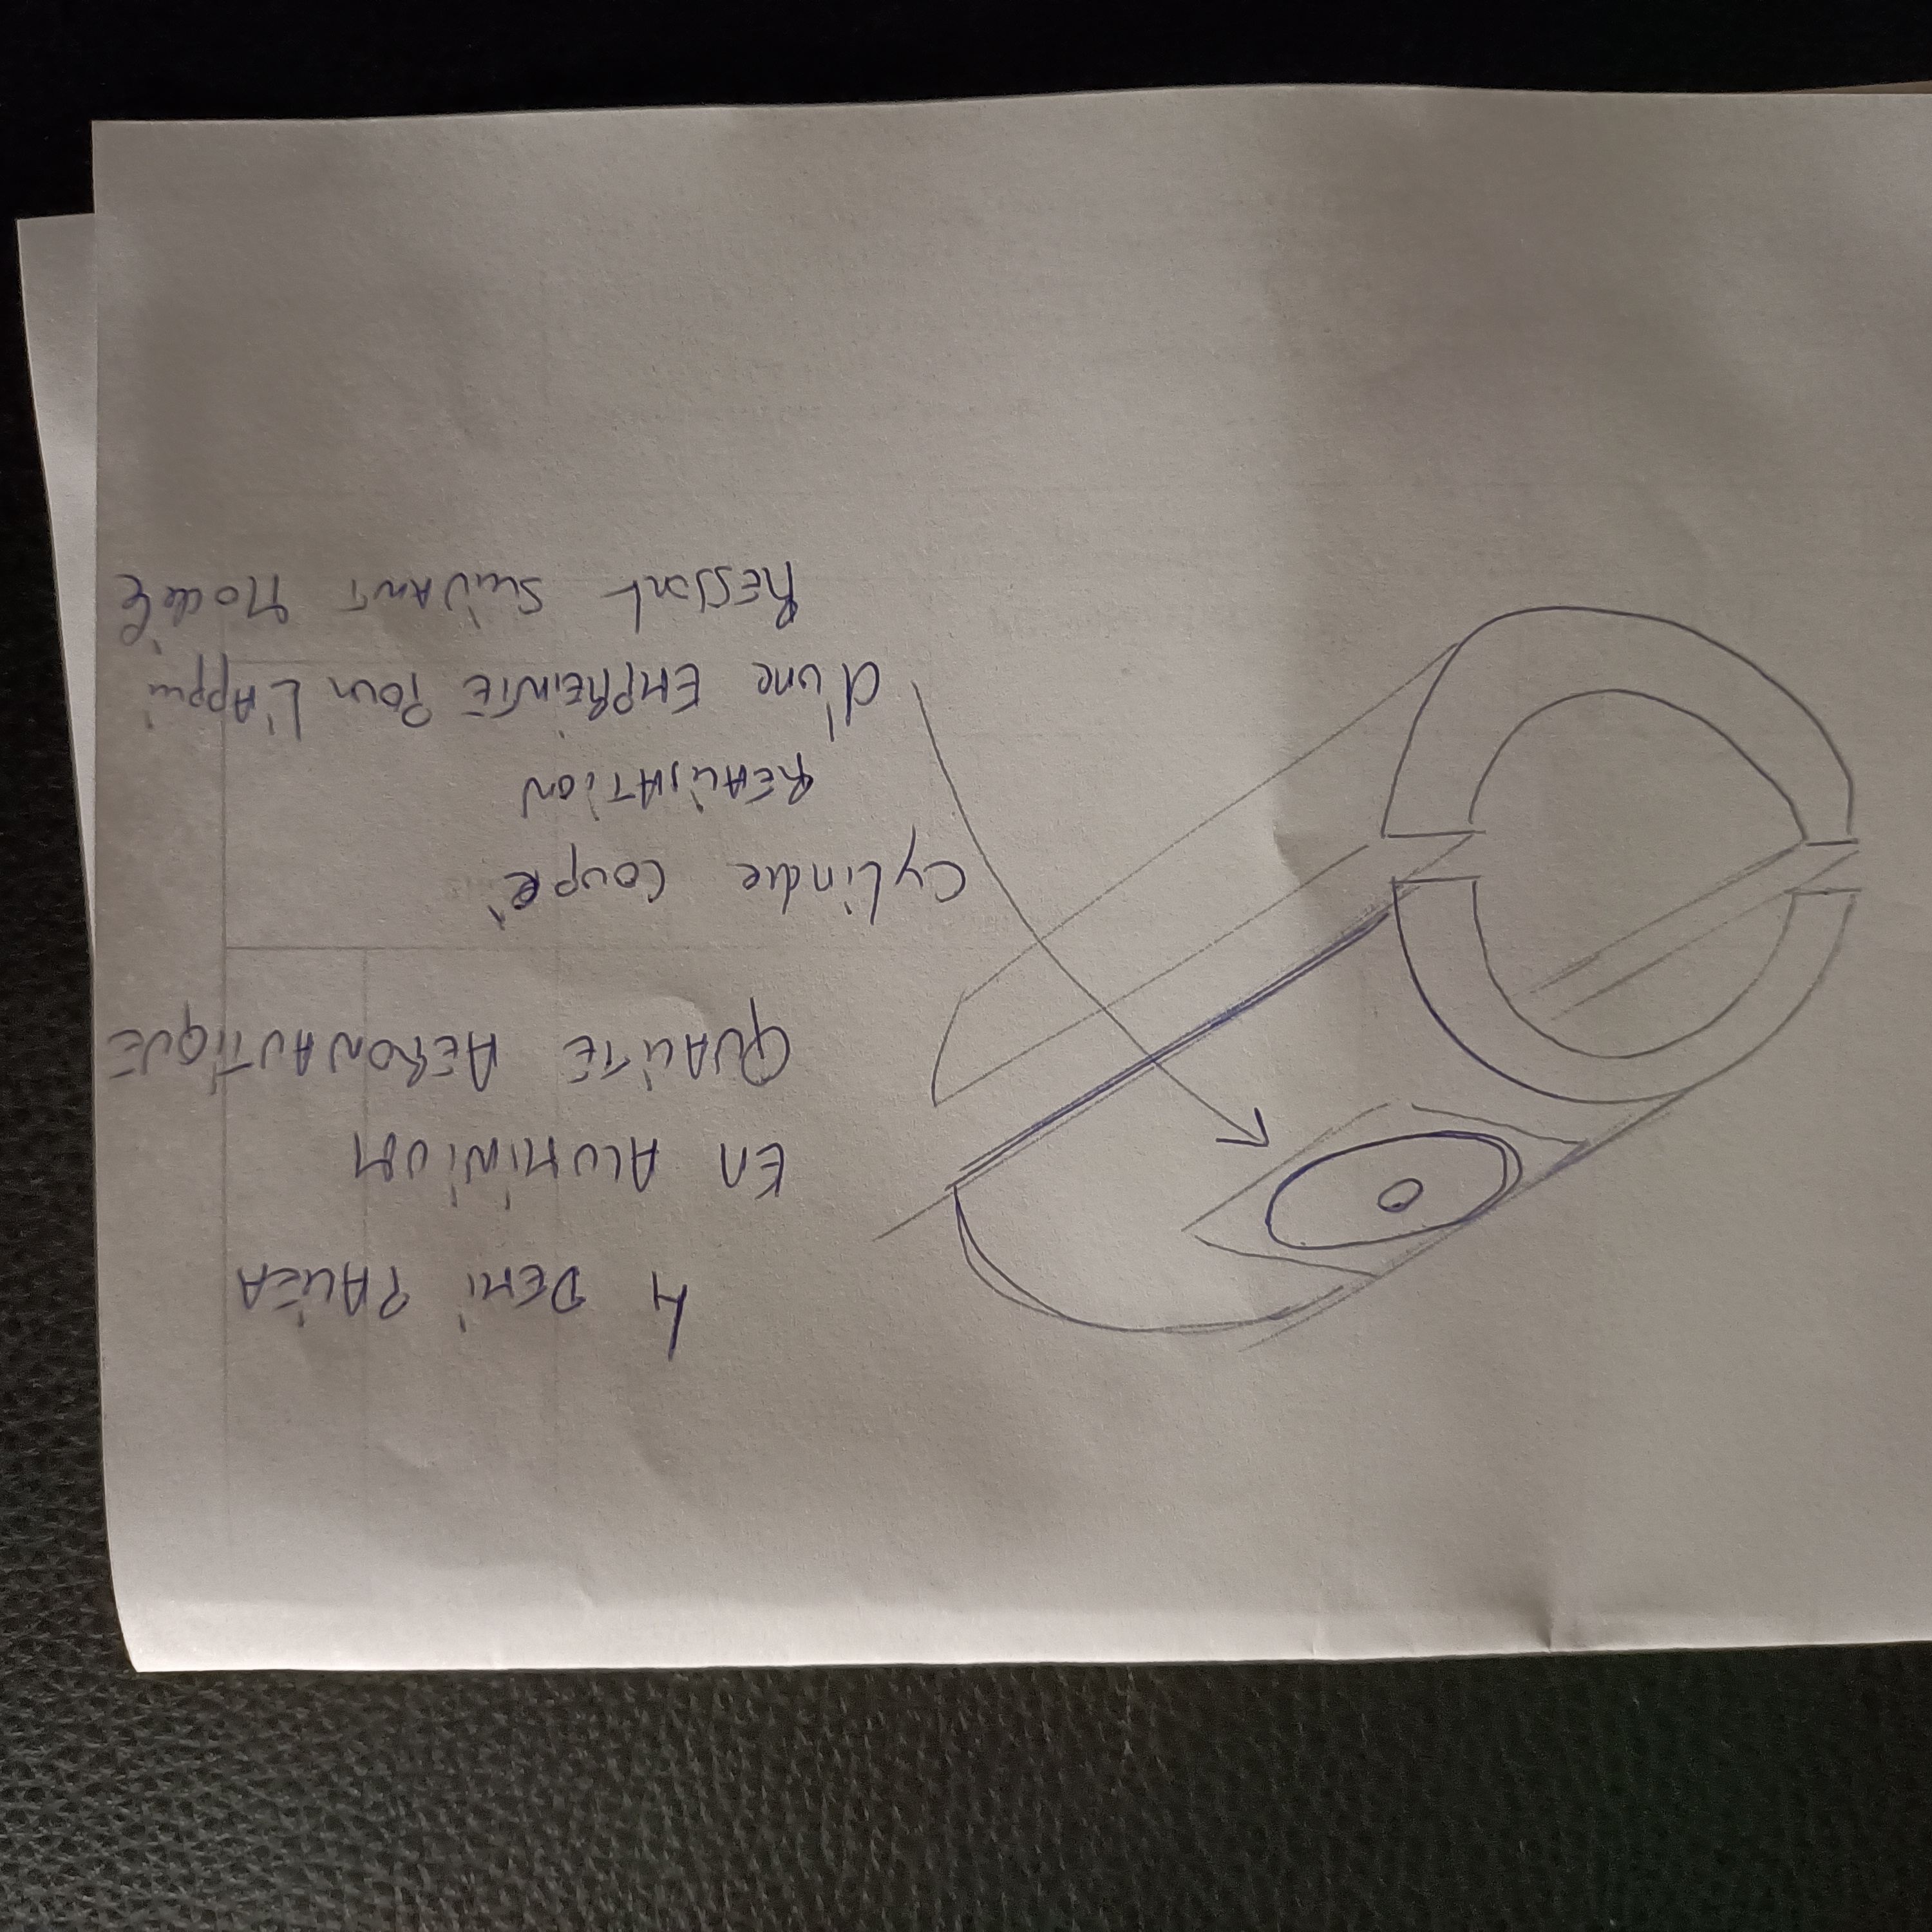 4 DEMI PALIER
EN ALUMINIUM
QUALITE AERONAUTIQUE
Cylindre coupé
REALISATION
d'une EMPREINTE POUR L'Appui
RESSORT SUIVANT Modèle